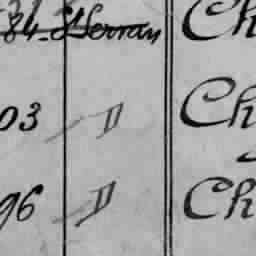 84 Ch
03 D Ch
96 D Ch